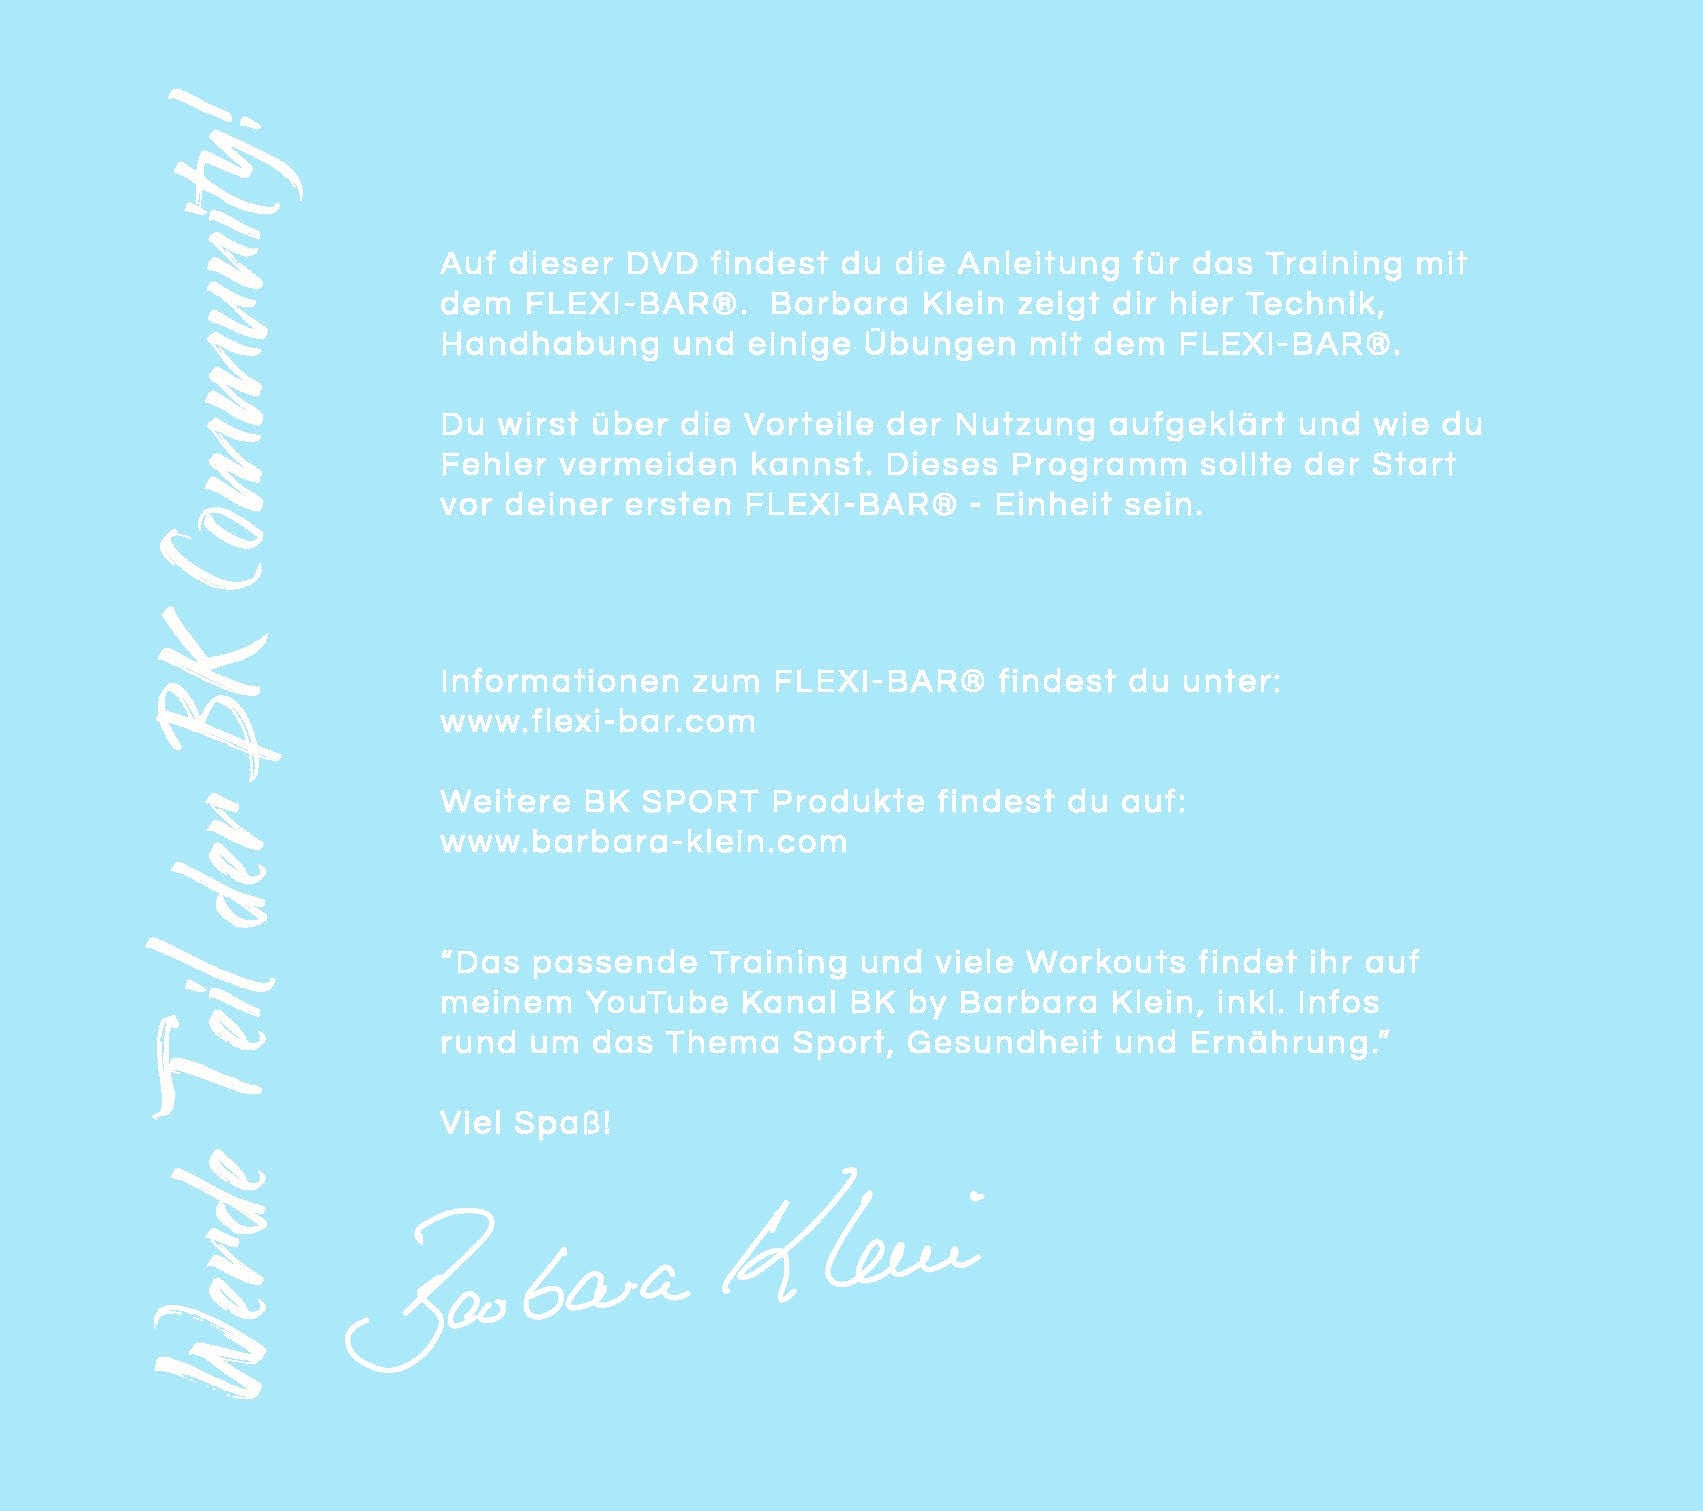 Werde Teil der BK Community!
Auf dieser DVD findest du die Anleitung für das Training mit
dem FLEXI-BAR®.  Barbara Klein zeigt dir hier Technik,
Handhabung und einige Übungen mit dem FLEXI-BAR®.
Du wirst über die Vorteile der Nutzung aufgeklärt und wie du
Fehler vermeiden kannst. Dieses Programm sollte der Start
vor deiner ersten FLEXI-BAR® - Einheit sein.
Informationen zum FLEXI-BAR® findest du unter:
www.flexi-bar.com
Weitere BK SPORT Produkte findest du auf:
www.barbara-klein.com
"Das passende Training und viele Workouts findet ihr auf
meinem YouTube Kanal BK by Barbara Klein, inkl. Infos
rund um das Thema Sport, Gesundheit und Ernährung."
Viel Spaß!
Barbara Klein